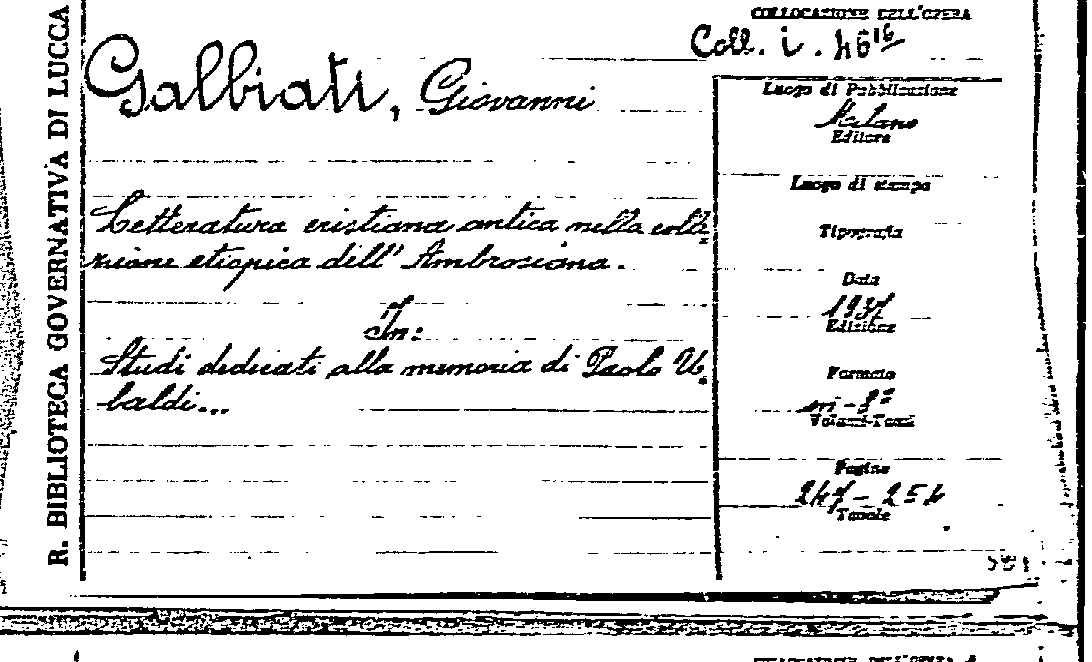 R. BIBLIOTECA GOVERNATIVA DI LUCCA
COLLOCAZIONE DELL'OPERA
Coll. i. 46 16
Galbiati, Giovanni
Letteratura cristiana antica nella colle
zione etiopica dell' Ambrosiana.
In:
Studi dedicati alla memoria di Paolo U
baldi...
Luogo di Pubblicazione
Milano
Editore
Luogo di stampa
Tipografia
Data
1937
Edizione
Formato
in-8°
Volumi-Tomi
Pagine
247-254
Tavole
COLLOCAZIONE DELL'OPERA